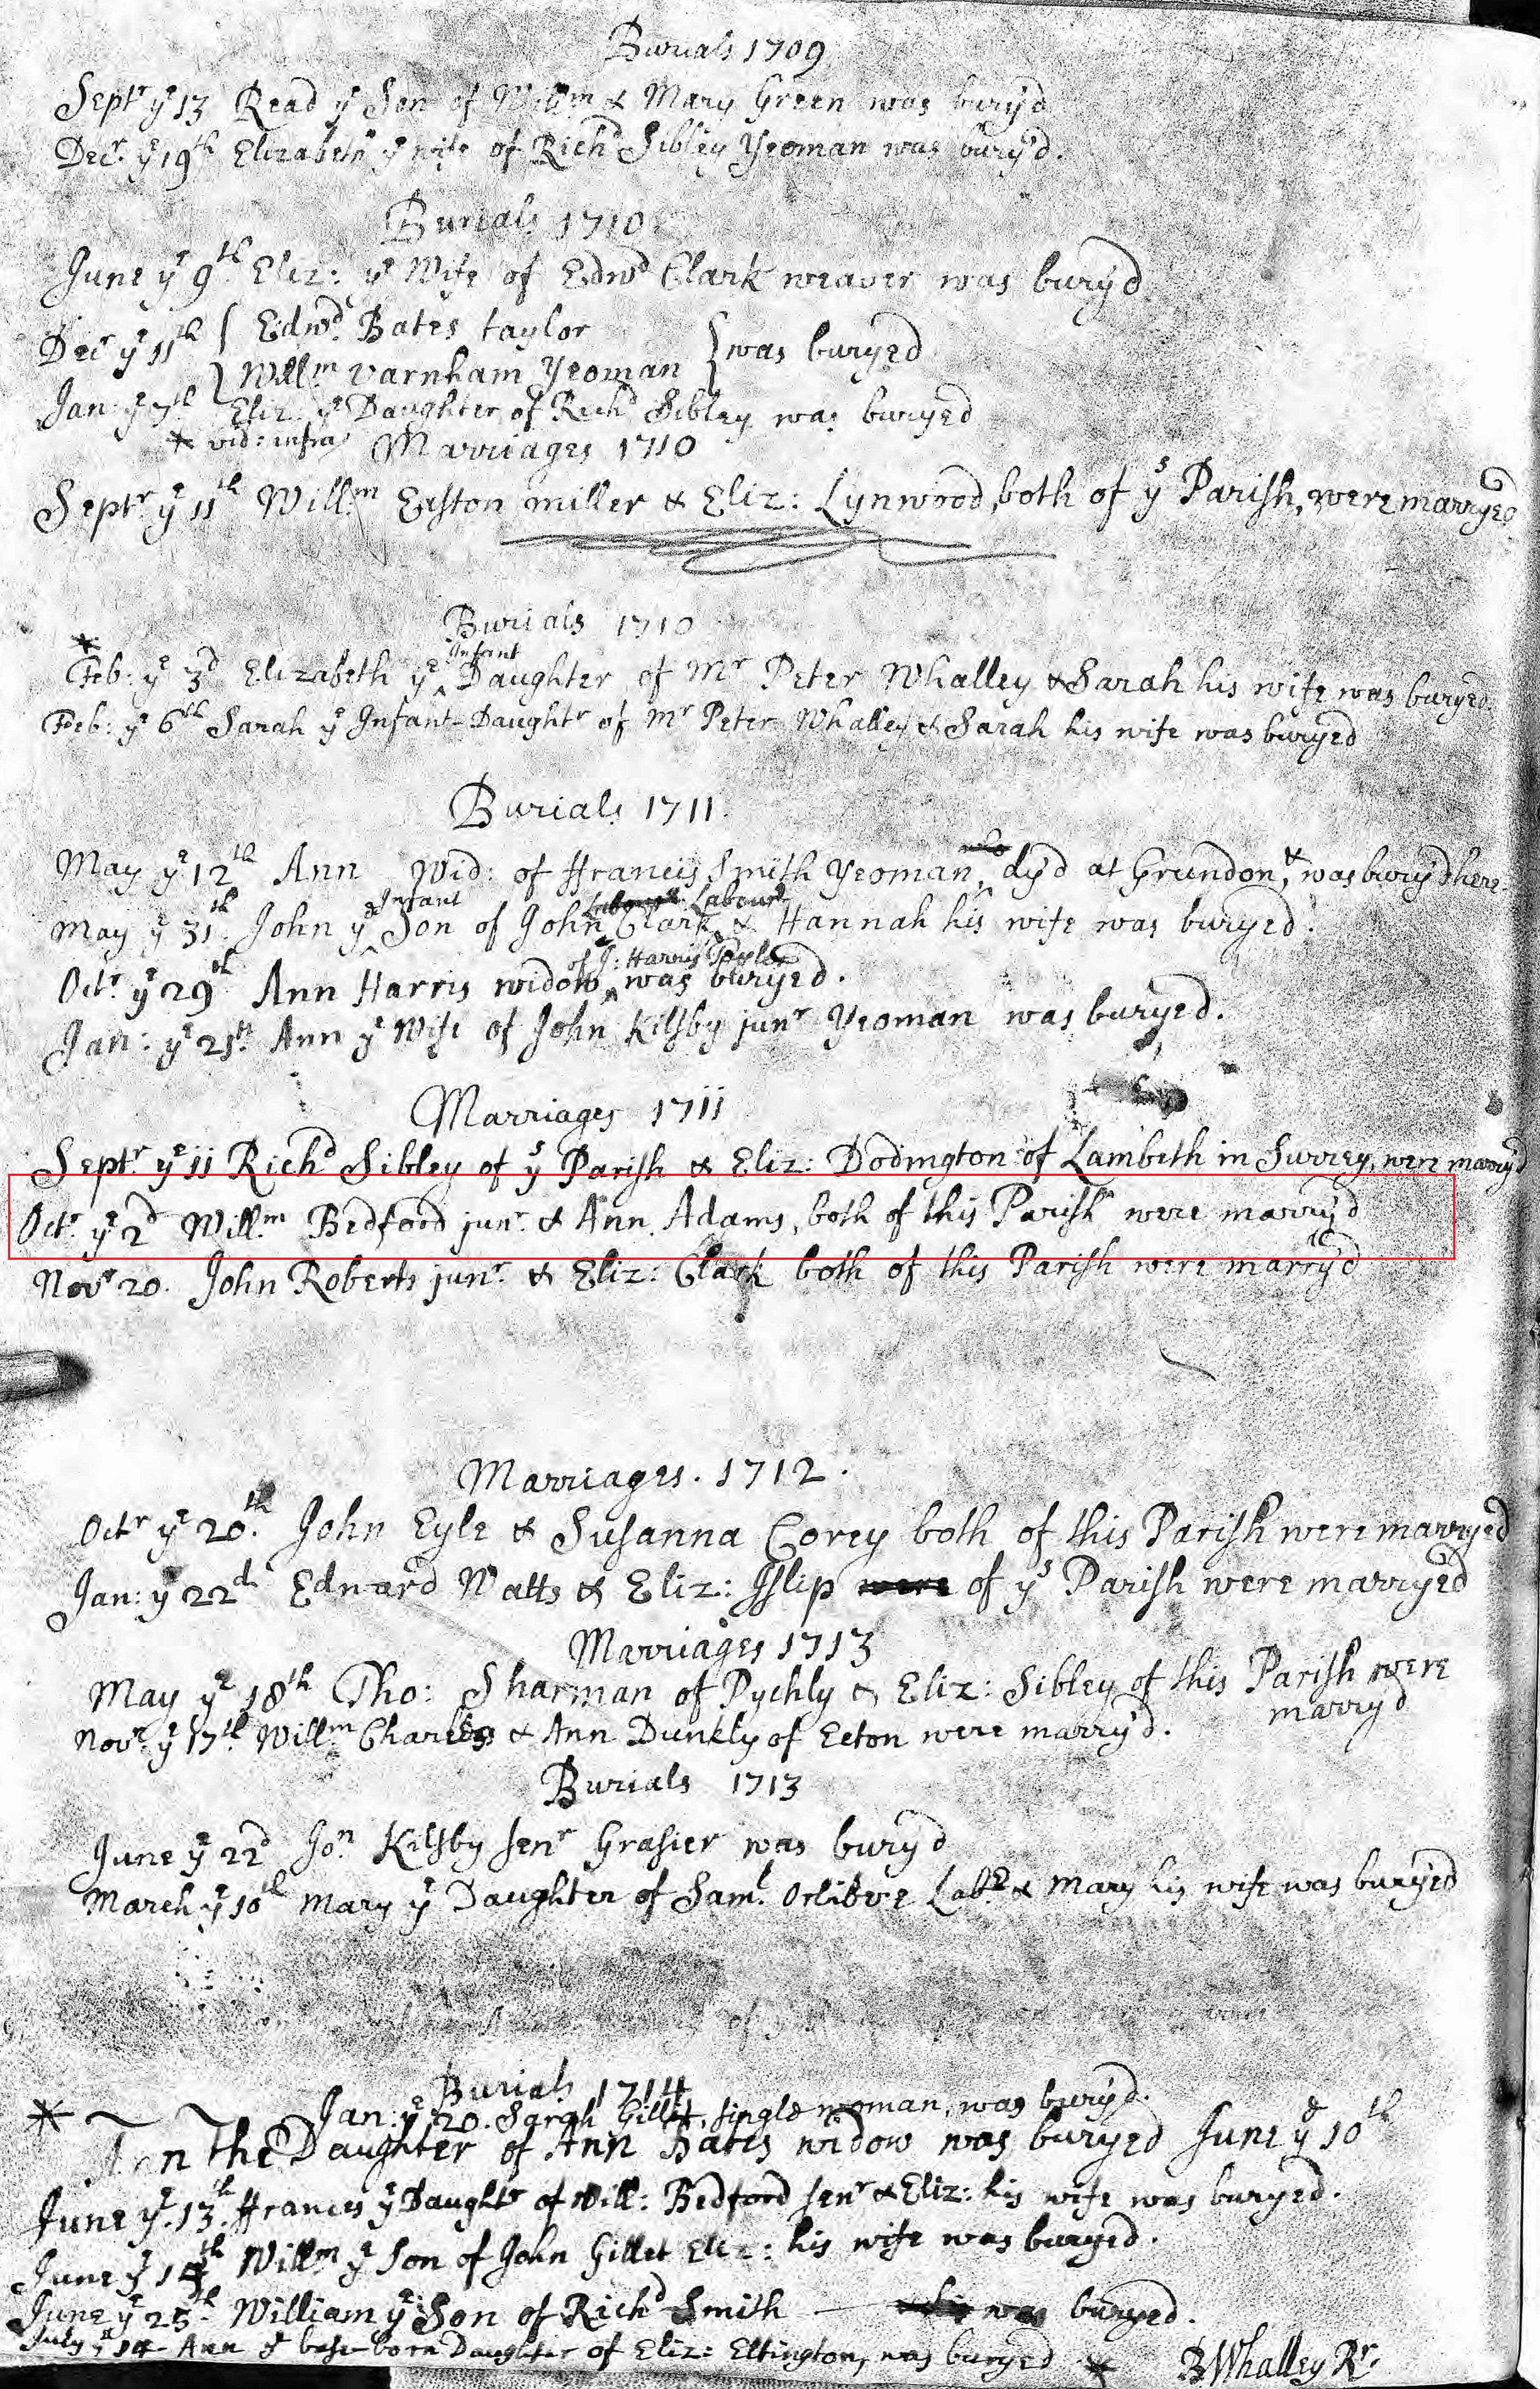 Burials 1709
Septr ye 13 Read ye Son of Willm & Mary Green was bury'd
Decr. ye 19th Elizabeth ye wife of Richd Sibley Yeoman was bury'd.
Burials 1710
June ye 9th Eliz: ye Wife of Edwd Clark weaver was bury'd
Decr ye 11th { Edwd. Bates taylor
} Willm Varnham Yeoman } was buryed
Jan: ye 7th Eliz: ye Daughter of Richd Sibley was buryed
* vid: infra
Marriages 1710
Septr ye 11th Willm Easton miller & Eliz: Lynwood, both of ys Parish, were marryed
Burials 1710
* Feb: ye 3d Elizabeth ye Infant Daughter of Mr Peter Whalley & Sarah his wife was buryed.
Feb: ye 6th Sarah ye Infant Daughtr of Mr Peter Whalley & Sarah his wife was buryed
Burials 1711.
May ye 12th Ann Wid: of Francis Smith Yeoman, dy'd at Grendon, & was bury'd here.
May ye 31th. John ye Infant Son of John Clark Labourr & Hannah his wife was buryed.
Octr. ye 29th Ann Harris widow of J: Harris Taylor was buryed.
Jan: ye 25th. Ann ye Wife of John Kilsby junr Yeoman was buryed.
Marriages 1711
Septr. ye 11 Richd Sibley of ys Parish & Eliz: Dodington of Lambeth in Surrey, were marry'd
Octr. ye 2d Willm. Bedford junr. & Ann Adams, both of this Parish were marry'd
Novr 20. John Roberts junr. & Eliz: Clark both of this Parish were marry'd
Marriages. 1712.
Octr ye 20th. John Eyle & Susanna Corey both of this Parish were marryed
Jan: ye 22d Edward Watts & Eliz: Islip were of ys Parish were marryed
Marriages 1713
May ye 18th Tho: Sharman of Pychly & Eliz: Sibley of this Parish were
marry'd
Novr. ye 17th. Willm Charles & Ann Dunkly of Ecton were marry'd.
Burials 1713
June ye 22d Jon Kilsby senr Grasier was bury'd
March ye 10th Mary ye Daughter of Saml. Orlibere Labr. & Mary his wife was buryed
Burials 1714
Jan: ye 20. Sarah Gillit, single woman, was bury'd.
* Ann the Daughter of Ann Bates widow was buryed June ye 10th
June ye 13th. Frances ye Daughtr of Will: Bedford senr & Eliz: his wife was buryed.
June ye 14th Willm ye Son of John Gillet Eliz: his wife was buryed.
June ye 25th. William ye Son of Richd Smith was buryed.
July ye 14 Ann ye base-born Daughter of Eliz: Eltington, was buryed *
B Whalley Rr.